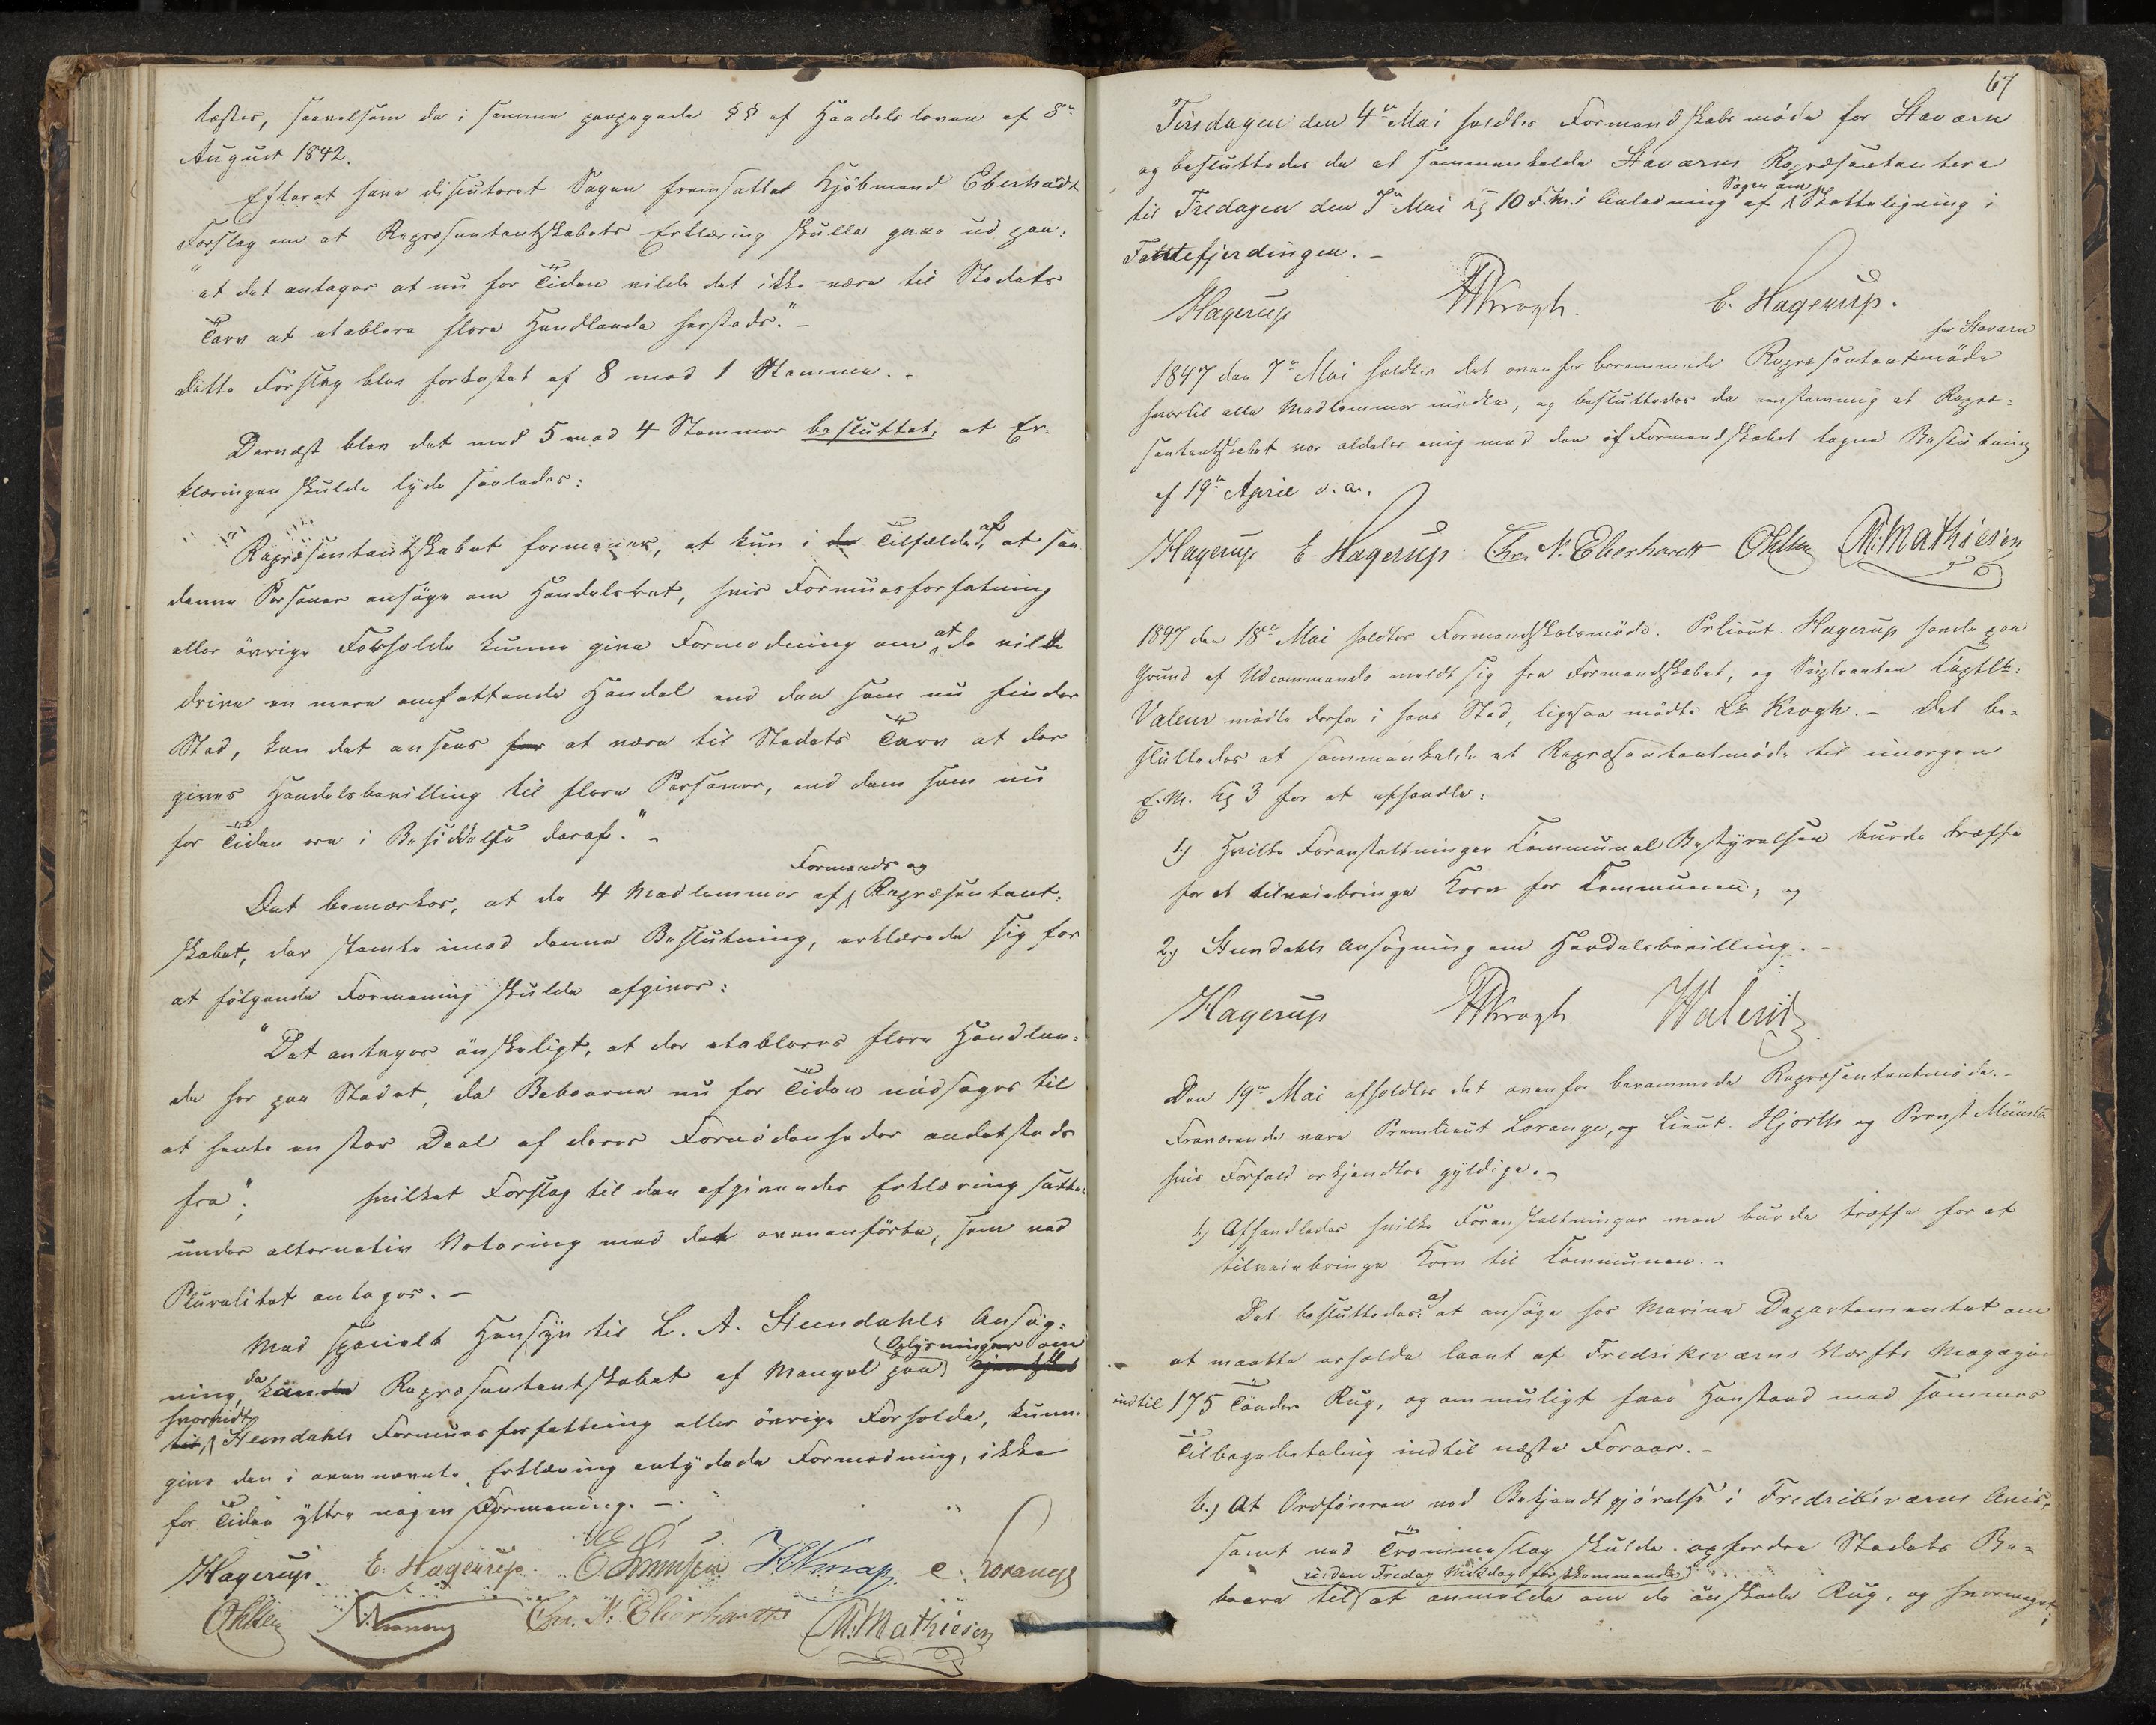 læstes, saavelsom de i samme paapegede §§ af Handelsloven af 8de
August 1842.
Efterat have discuteret Sagen fremsatte Kjöbmand Eberhadt
Forslag om at Repræsentantskabets Erklæring skulle gaae ud paa:
"at det antages at nu for Tiden vilde det ikke være til Stedets
Tarv at etablere flere Handlende hersteds." -
Dette Forslag blev forkastet af 8 mod 1 Stemme. -
Dernæst blev det med 5 mod 4 Stemmer besluttet, at Er-
klæringen skulde lyde saaledes:
"Repræsentantskabet formener, at kun i de Tilfælde af, at saa
danne Personer ansöge om Handelsret, hvis Formuesforfatning
eller övrige Forholde kunne give Formodning om at de vilde
drive en mere omfattende Handel end den som nu finder
Sted, kan det ansees for at være til Stedets Tarv at der
gives Handelsbevilling til flere Personer, end dem som nu
for Tiden ere i Besiddelse deraf." -
Formands og
Det bemærkes, at de 4 Medlemmer af Repræsentant-
skabet, der stemte imod denne Beslutning, erklærede sig for
at fölgende Formening skulde afgives:
"Det antages önskeligt, at der etableres flere Handlen-
de her paa Stedet, da Beboerne nu for Tiden nödsages til
at hente en stor Deel af deres Fornödenheder andetsteds
fra"; hvilket Forslag til den afgivendes Erklæring sattes
under alternativ Votering med det ovenanförte, som ved
Pluralitet antages. -
Med specielt Hensyn til L. A. Stendahls Ansög-
ning, da kunde Repræsentantskabet af Mangel paa Oplysninger om
hvorvidt
til Stendahls Formuesforfatning eller övrige Forholde, kunne
give den i ovennævnte Erklæring antydede Formodning, ikke
for Tiden yttre nogen Formening. -
Hagerup. E. Hagerup H Knap. C. Lorange
Ohlsen Chr. N. Eberhardt M. Mathiesen
67
Tirsdagen den 4de Mai holdtes Formandskabsmöde for Staværn
og besluttedes da at sammenkalde Staværns Repræsentantere
til Fredagen den 7de Mai Kl 10 F.M. i Anledning af Sagen om Skatteligning i
Tanumfjerdingen. -
Hagerup Krogh. E. Hagerup.
for Staværn
1847 den 7de Mai holdtes det ovenfor berammede Repræsentantmöde
hvortil alle Medlemmer mödte, og besluttedes da eenstemmig at Repræ-
sentantskabet var aldeles enig med den af Formandskabet tagne Beslutning
af 19de April d. A.
Hagerup E. Hagerup Chr. N. Eberhardt Ohlsen M. Mathiesen
1847 den 18de Mai holdtes Formandskabsmöde. Prlieut. Hagerup havde paa
Grund af Udcommando meldt sig fra Formandskabet, og Supleanten Captlt:
Valeur mödte derfor i hans Sted, ligesaa mödte Lt Krogh. - Det be-
sluttedes at sammenkalde et Repræsentantmöde til imorgen
E.M. Kl 3 for at afhandle:
1.) Hvilke Foranstaltninger Communal Bestyrelsen burde træffe
for at tilveiebringe Korn for Communen; og
2.) Stendahls Ansögning om Handelsbevilling. -
Hagerup Krogh. Valeur
Den 19de Mai afholdtes det ovenfor berammede Repræsentantmöde. -
Fraværende vare Premlieut Lorange, og Lieut. Hjorth og Provst Münster
hvis Forfald erkjendtes gyldige. -
1.) Afhandledes hvilke Foranstaltninger man burde træffe for at
tilveiebringe Korn til Communen. -
Det besluttedes: a) at ansöge hos Marine Departementet om
at maatte erholde laant af Fredriksværns Værfts Magazin
indtil 175 Tönder Rug, og om muligt faae Henstand med sammes
Tilbagebetaling indtil næste Foraar. -
b.) At Ordföreren ved Bekjendtgjörelse i Fredriksværns Avis,
samt ved Trommeslag skulde opfordre Stedets Be-
inden Fredag Middag förstkommende
boere til at anmelde om de önskede Rug, og hvormeget,